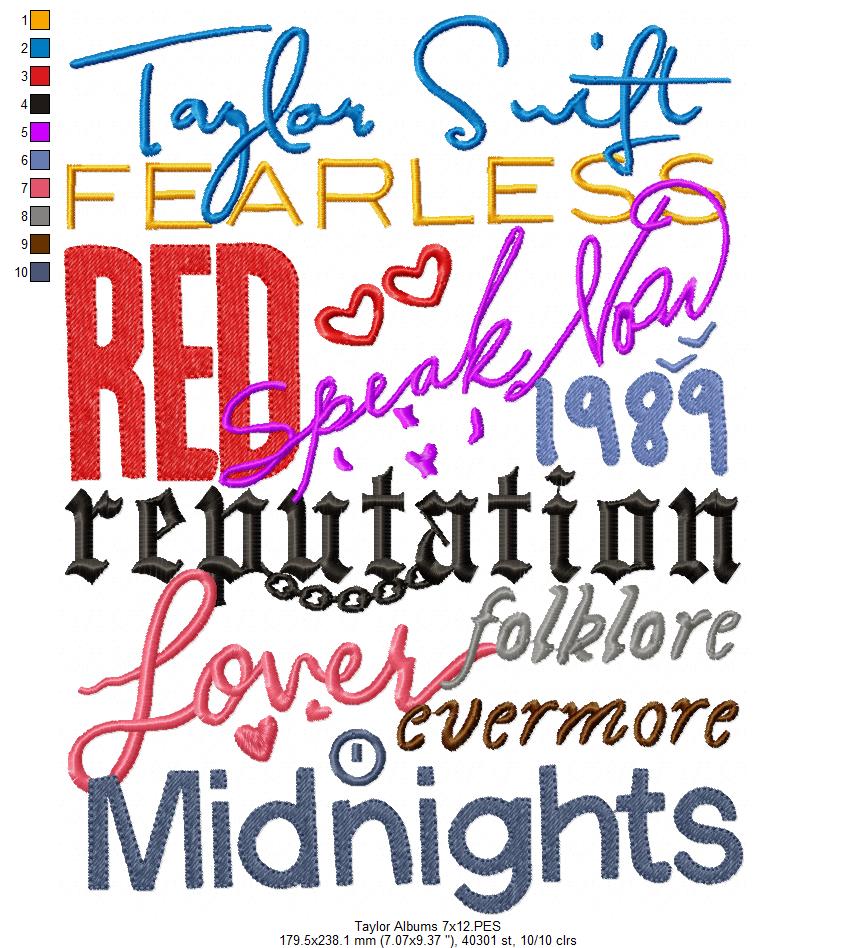 1
2
3
4
5
6
7
8
9
10
Taylor Swift
FEARLESS
RED
Speak Now
1989
reputation
Lover
folklore
evermore
Midnights
Taylor Albums 7x12.PES
179.5x238.1 mm (7.07x9.37 "), 40301 st, 10/10 clrs